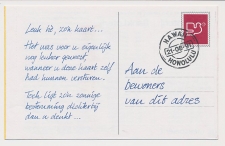 Leuk hè, zo'n kaart...
Het was voor u eigenlijk
nog leuker geweest,
wanneer u deze kaart zelf
had kunnen versturen.
Toch ligt zo'n zonnige
bestemming dichterbij
dan u denkt...
HAWAII
HONOLULU
Aan de
bewoners
van dit adres